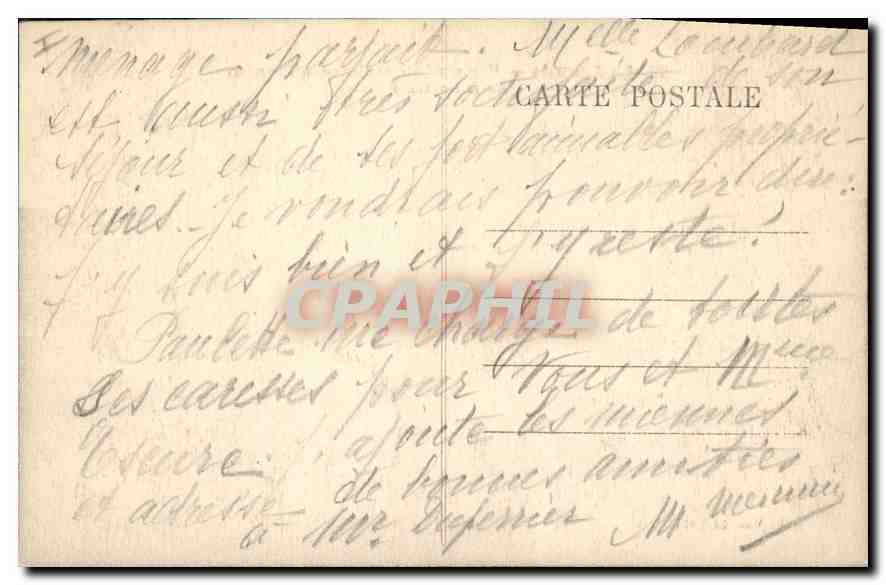 ménage parfait. Melle Lombard
est aussi très satisfaite de son
CARTE POSTALE
séjour et de ses fort aimables proprié-
taires. Je voudrais pouvoir dire:
J'y suis bien et j'y reste!
CPAPHIL
Paulette me charge de toutes
ses caresses pour Vous et Mme
J'ajoute les miennes
et adresse de bonnes amitiés
à Mr